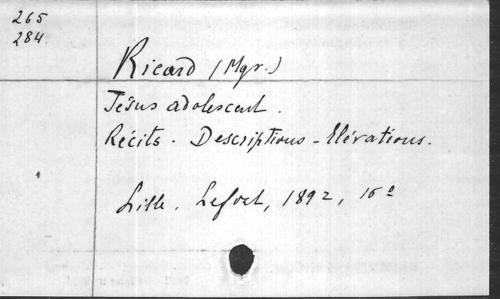 265
284
Ricard (Mgr.)
Jésus adolescent.
Récits - Descriptions - Elévations.
Lille, Lefort, 1892, 16°